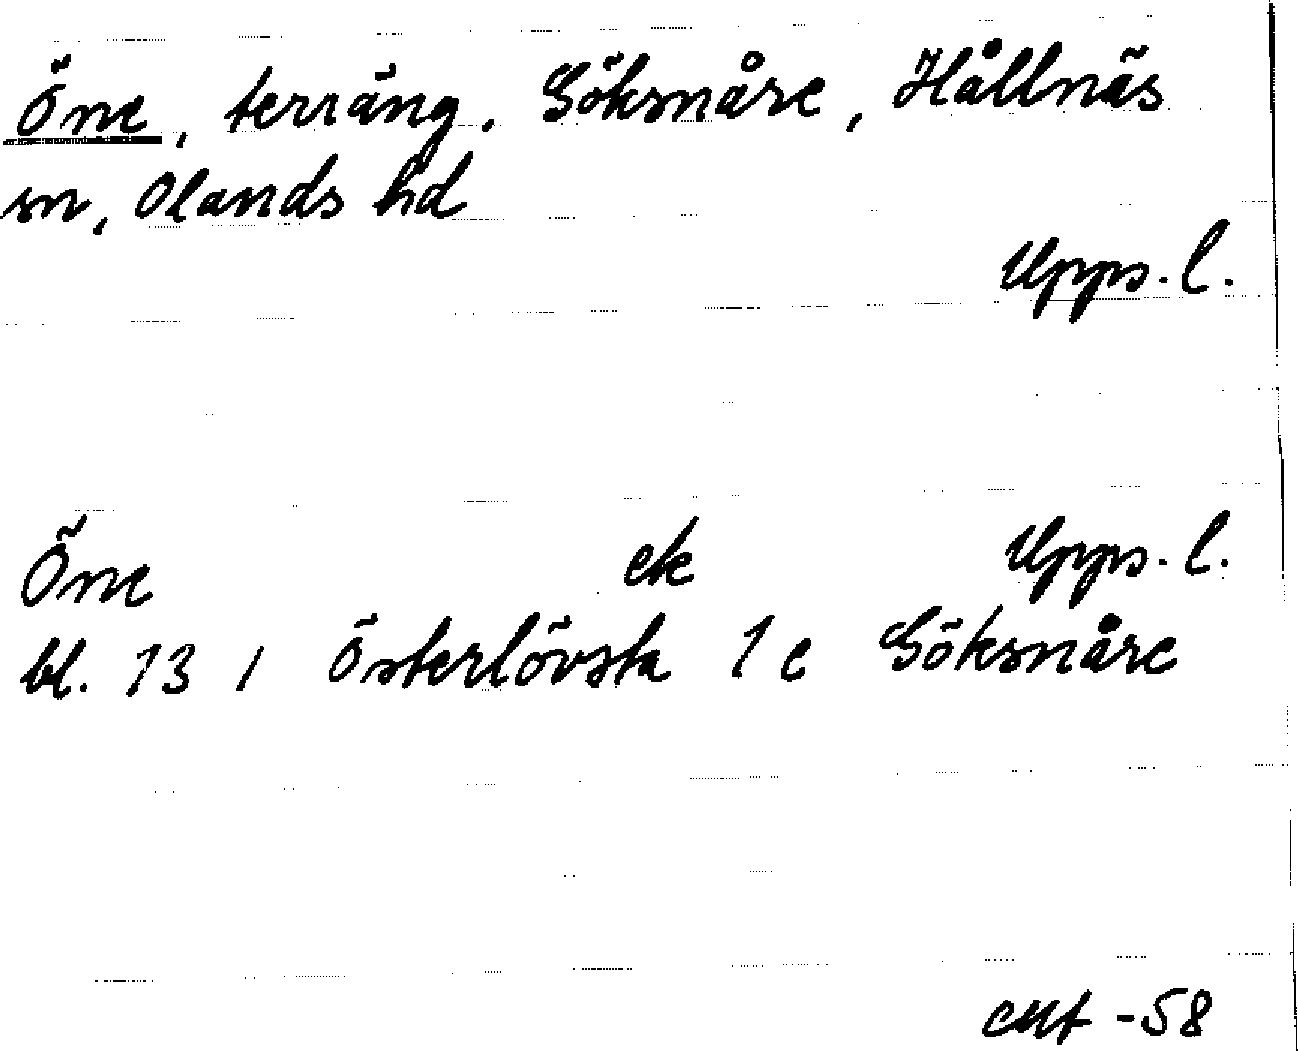 Öne, terräng. Göksnåre, Hållnäs
sn, Olands hd
Upps. l.
Öne ek Upps. l.
bl. 13 i Österlövsta 1 c Göksnåre
-58